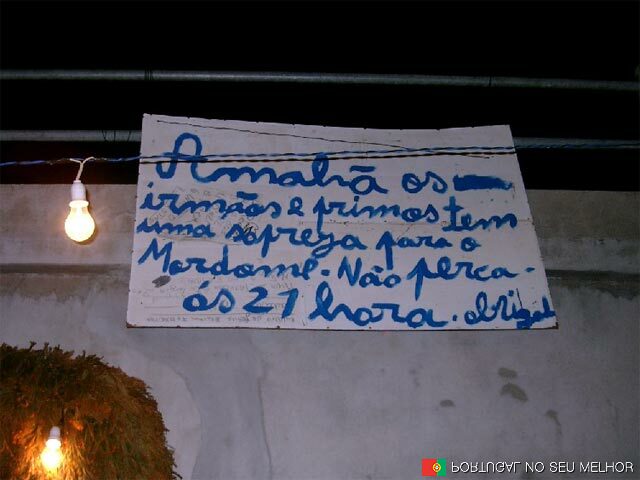 Amalhã os
irmãos e primos tem
uma sopreza para o
Mordome. Não perca.
ás 21 hora. obrigad
PORTUGAL NO SEU MELHOR